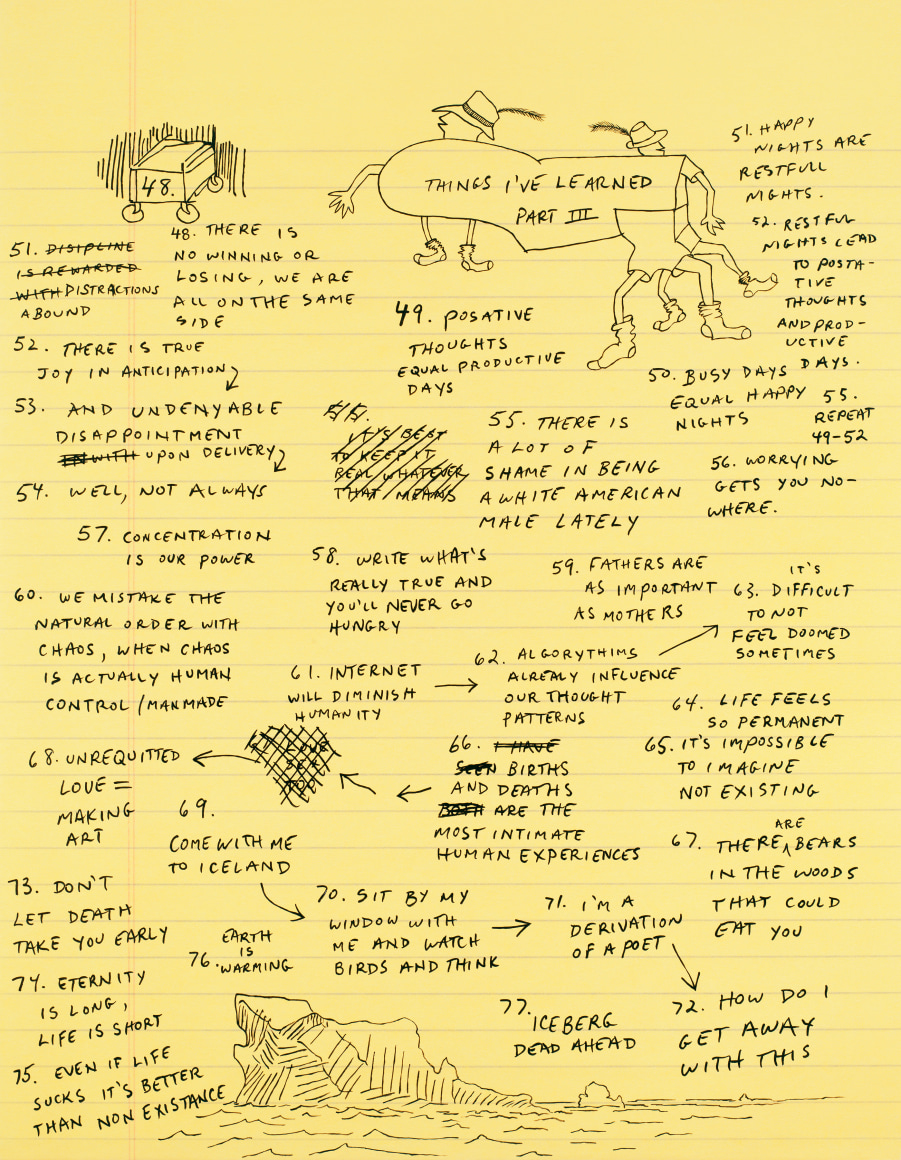 THINGS I'VE LEARNED
PART III
48.
48. THERE IS
NO WINNING OR
LOSING, WE ARE
ALL ON THE SAME
SIDE
49. POSATIVE
THOUGHTS
EQUAL PRODUCTIVE
DAYS
50. BUSY DAYS
EQUAL HAPPY
NIGHTS
51. HAPPY
NIGHTS ARE
RESTFULL
NIGHTS.
52. RESTFUL
NIGHTS LEAD
TO POSTA-
TIVE
THOUGHTS
AND PROD-
UCTIVE
DAYS.
55.
REPEAT
49-52
51. DISIPLINE
IS REWARDED
WITH DISTRACTIONS
ABOUND
52. THERE IS TRUE
JOY IN ANTICIPATION
53. AND UNDENYABLE
DISAPPOINTMENT
IN WITH UPON DELIVERY
54. WELL, NOT ALWAYS
IT'S BEST
TO KEEP IT
REAL WHATEVER
THAT MEANS
55. THERE IS
A LOT OF
SHAME IN BEING
A WHITE AMERICAN
MALE LATELY
56. WORRYING
GETS YOU NO-
WHERE.
57. CONCENTRATION
IS OUR POWER
58. WRITE WHAT'S
REALLY TRUE AND
YOU'LL NEVER GO
HUNGRY
59. FATHERS ARE
AS IMPORTANT
AS MOTHERS
60. WE MISTAKE THE
NATURAL ORDER WITH
CHAOS, WHEN CHAOS
IS ACTUALLY HUMAN
CONTROL / MANMADE
61. INTERNET
WILL DIMINISH
HUMANITY
62. ALGORYTHIMS
ALREALY INFLUENCE
OUR THOUGHT
PATTERNS
IT'S
63. DIFFICULT
TO NOT
FEEL DOOMED
SOMETIMES
64. LIFE FEELS
SO PERMANENT
65. IT'S IMPOSSIBLE
TO IMAGINE
NOT EXISTING
66. I HAVE
SEEN BIRTHS
AND DEATHS
BOTH ARE THE
MOST INTIMATE
HUMAN EXPERIENCES
67. THERE ARE BEARS
IN THE WOODS
THAT COULD
EAT YOU
LOVE
68. UNREQUITTED
LOVE =
MAKING
ART
69.
COME WITH ME
TO ICELAND
70. SIT BY MY
WINDOW WITH
ME AND WATCH
BIRDS AND THINK
71. I'M A
DERIVATION
OF A POET
72. HOW DO I
GET AWAY
WITH THIS
73. DON'T
LET DEATH
TAKE YOU EARLY
74. ETERNITY
IS LONG,
LIFE IS SHORT
75. EVEN IF LIFE
SUCKS IT'S BETTER
THAN NON EXISTANCE
EARTH
IS
76. WARMING
77.
ICEBERG
DEAD AHEAD